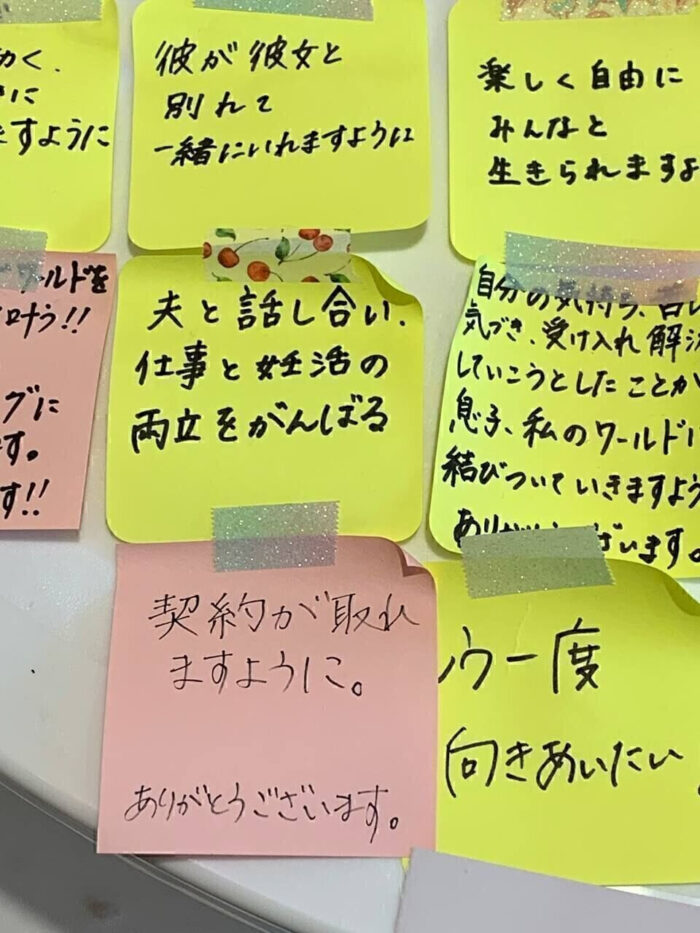 すように
彼が彼女と
別れて
一緒にいれますように
楽しく自由に
みんなと
生きられますよ
ワールドを
叶う!!
グに
す。
す!!
夫と話し合い、
仕事と妊活の
両立をがんばる
自分の気持ち、
気づき、受け入れ解決
していこうとしたことが
息子、私のワールドに
結びついていきますよう
ありがとうございます。
契約が取れ
ますように。
ありがとうございます。
ウ一度
向きあいたい